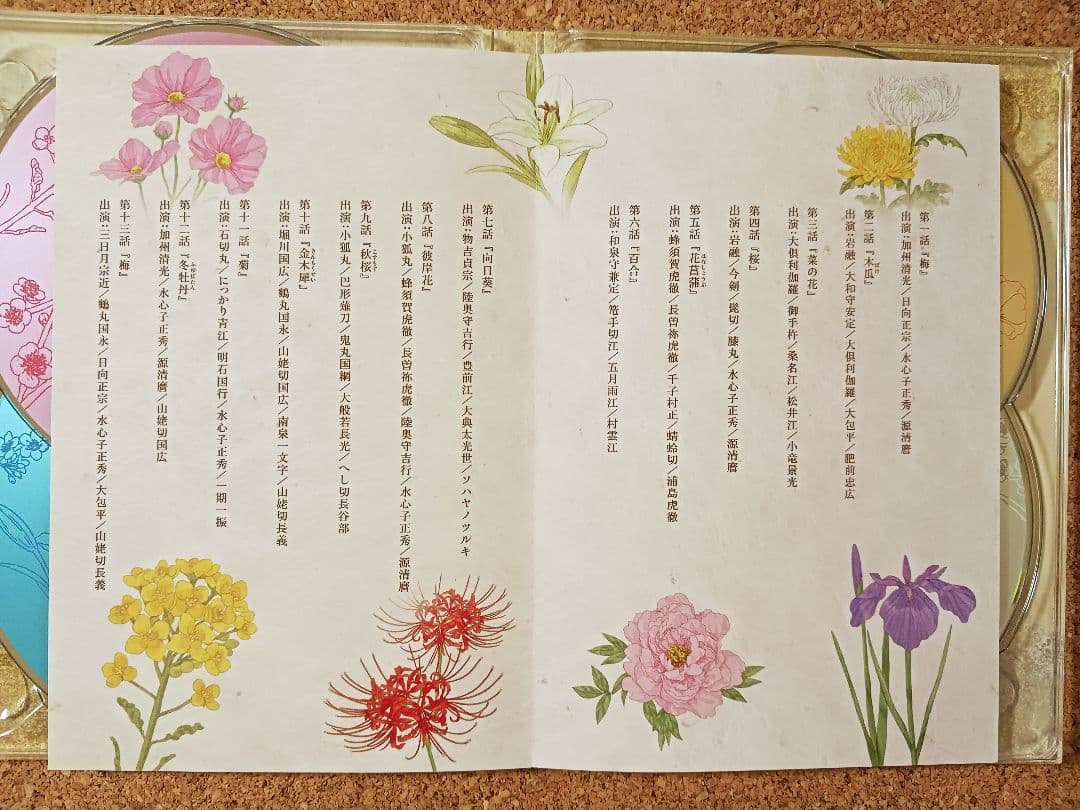 第一話『梅』
出演：加州清光／日向正宗／水心子正秀／源清麿
第二話『木瓜』
ぼけ
出演：岩融／大和守安定／大倶利伽羅／大包平／肥前忠広
第三話『菜の花』
出演：大倶利伽羅／御手杵／桑名江／松井江／小竜景光
第四話『桜』
出演：岩融／今剣／髭切／膝丸／水心子正秀／源清麿
第五話『花菖蒲』
はなしょうぶ
出演：蜂須賀虎徹／長曽祢虎徹／千子村正／蜻蛉切／浦島虎徹
第六話『百合』
出演：和泉守兼定／篭手切江／五月雨江／村雲江
第七話『向日葵』
出演：物吉貞宗／陸奥守吉行／豊前江／大典太光世／ソハヤノツルキ
第八話『彼岸花』
出演：小狐丸／蜂須賀虎徹／長曽祢虎徹／陸奥守吉行／水心子正秀／源清麿
第九話『秋桜』
こすもす
出演：小狐丸／巴形薙刀／鬼丸国綱／大般若長光／へし切長谷部
第十話『金木犀』
きんもくせい
出演：堀川国広／鶴丸国永／山姥切国広／南泉一文字／山姥切長義
第十一話『菊』
出演：石切丸／にっかり青江／明石国行／水心子正秀／一期一振
第十二話『冬牡丹』
ふゆぼたん
出演：加州清光／水心子正秀／源清麿／山姥切国広
第十三話『梅』
出演：三日月宗近／鶴丸国永／日向正宗／水心子正秀／大包平／山姥切長義